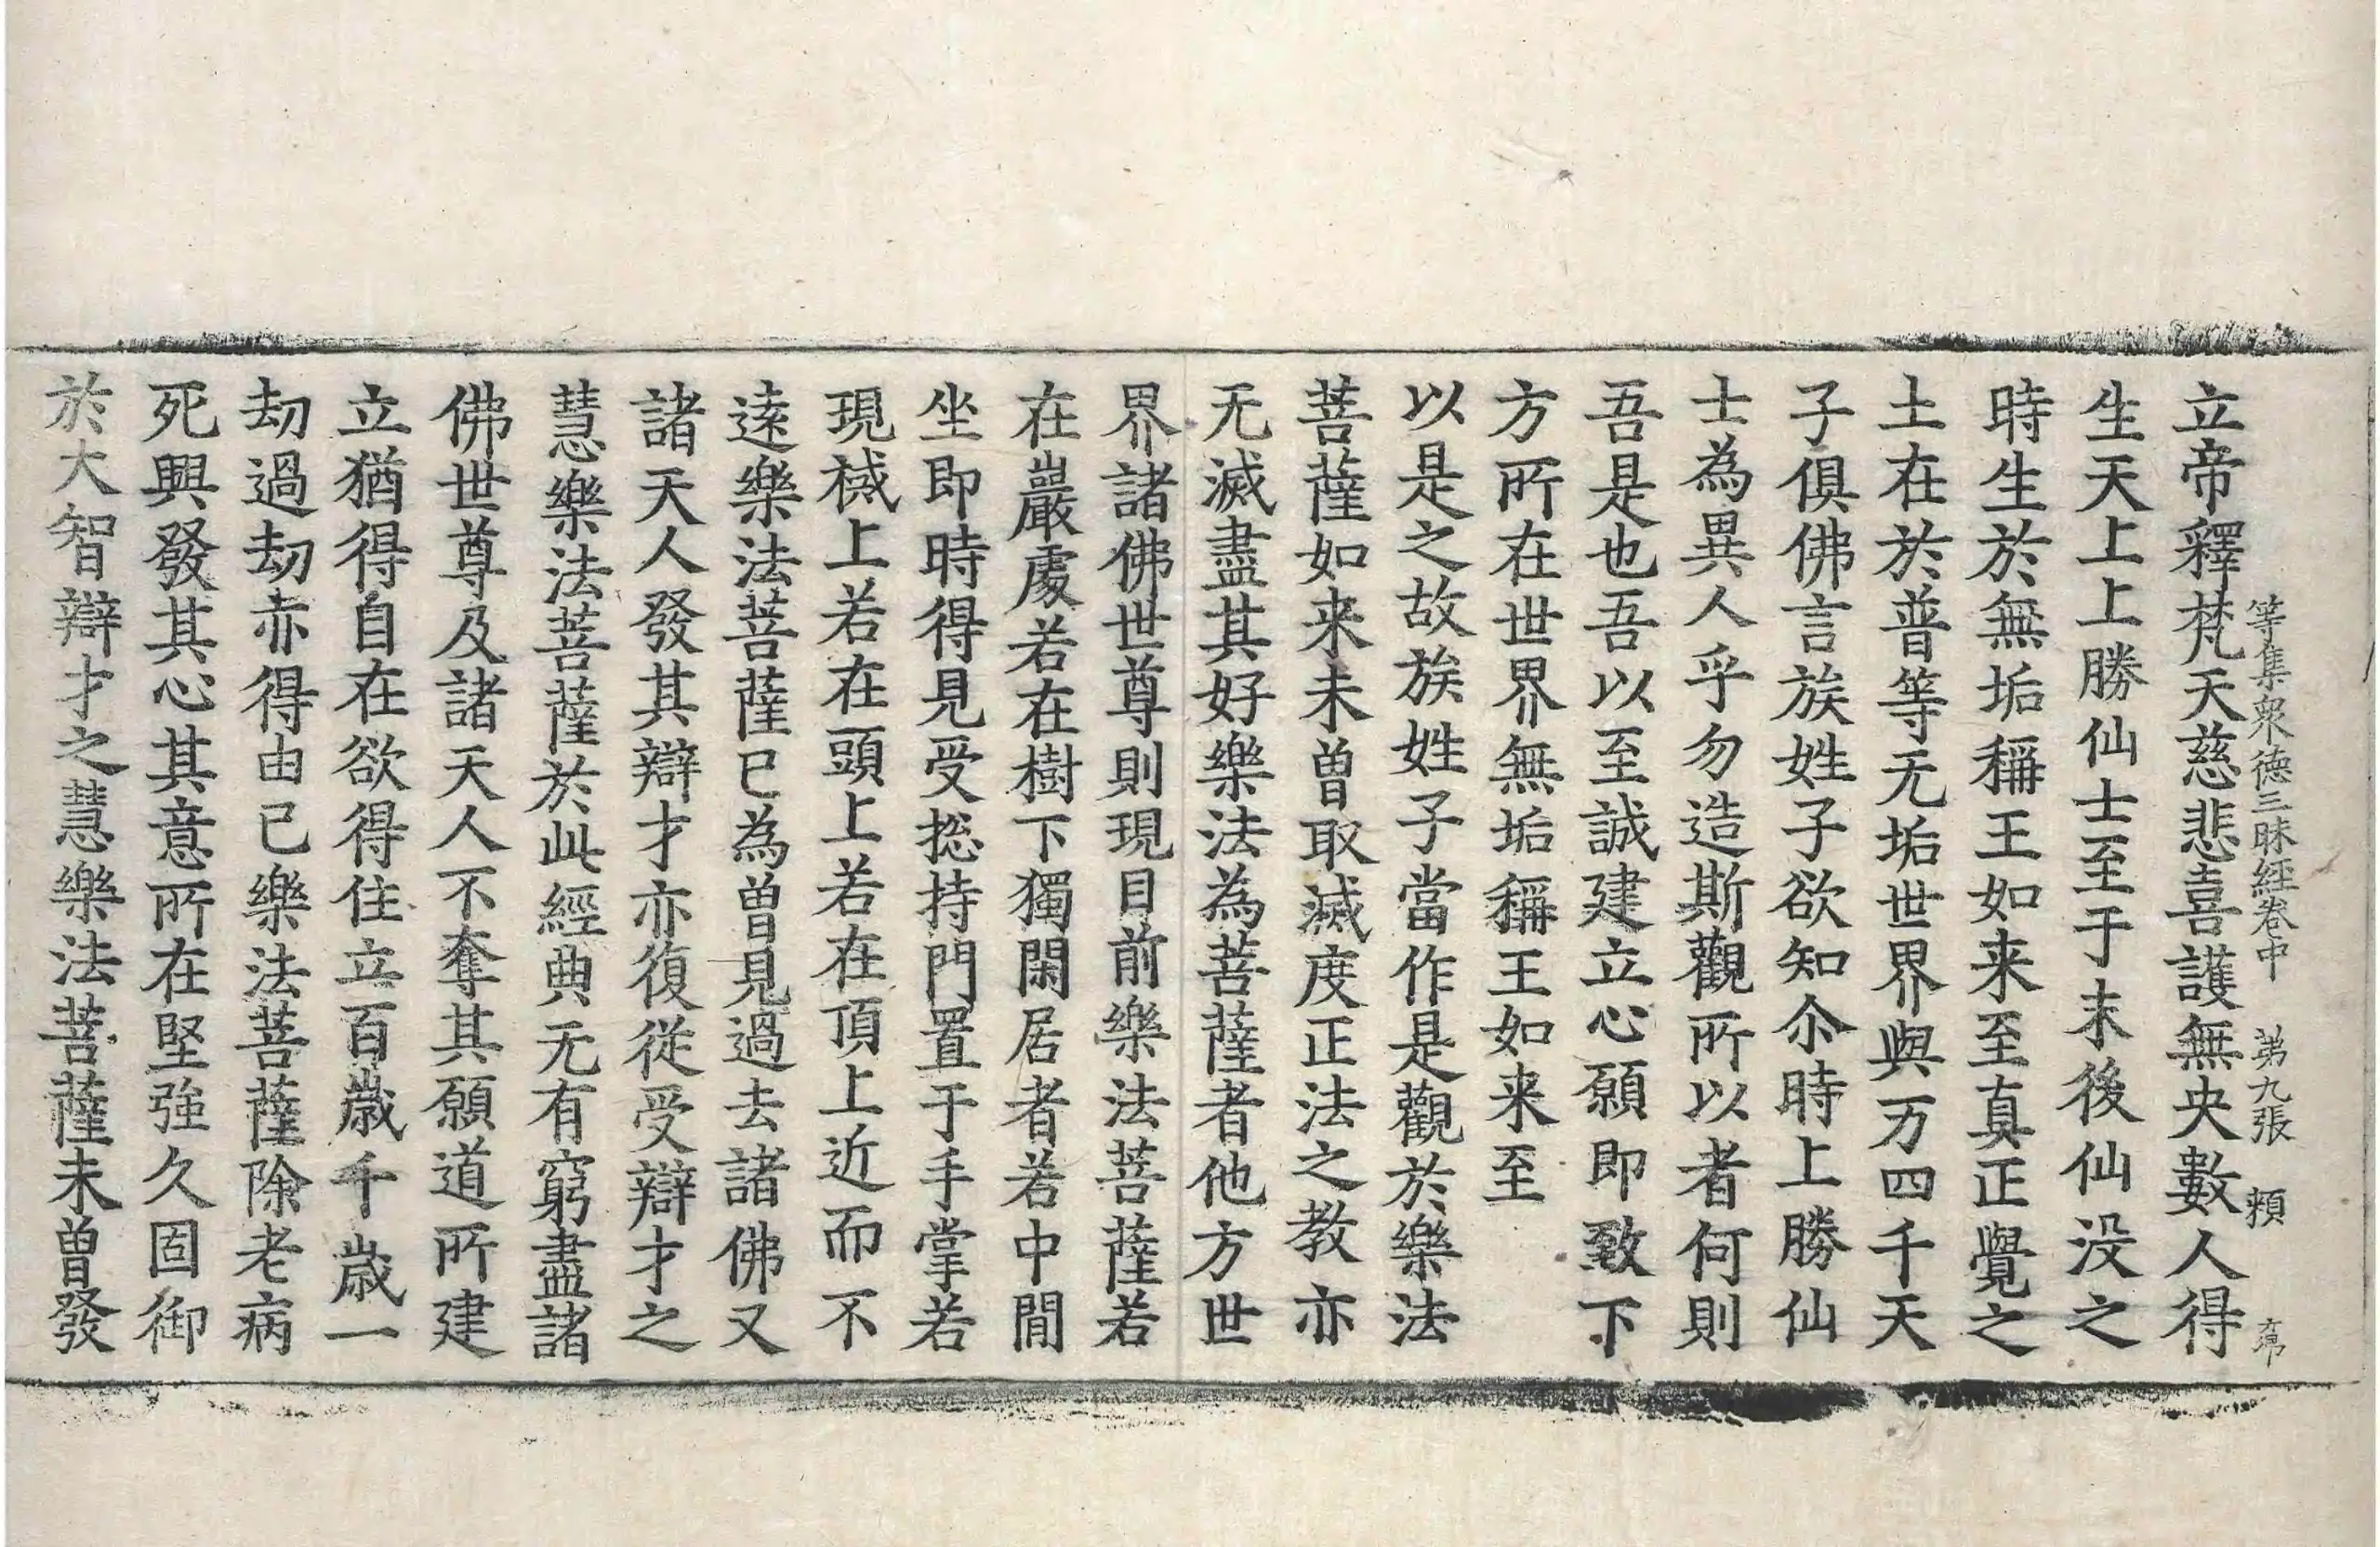 等集衆德三昧経卷中 第九張 頬
立帝釋梵天慈悲喜護無央數人得
生天上上勝仙士至于末後仙没之
時生於無垢稱王如来至真正覺之
土在於普等无垢世界與万四千天
子俱佛言族姓子欲知尒時上勝仙
士為異人乎勿造斯觀所以者何則
吾是也吾以至誠建立心願即致下
方所在世界無垢稱王如来至
以是之故族姓子當作是觀於樂法
菩薩如来未曽取滅度正法之教亦
无滅盡其好樂法為菩薩者他方世
界諸佛世尊則現目前樂法菩薩若
在巖處若在樹下獨閑居者若中間
坐即時得見受捴持門置于手掌若
現棫上若在頭上若在頂上近而不
遠樂法菩薩已為曽見過去諸佛又
諸天人發其辯才亦復従受辯才之
慧樂法菩薩於此經典无有窮盡諸
佛世尊及諸天人不奪其願道所建
立猶得自在欲得住立百歲千歲一
劫過劫亦得由已樂法菩薩除老病
死興發其心其意所在堅強久固御
於大智辯才之慧樂法菩薩未曽發